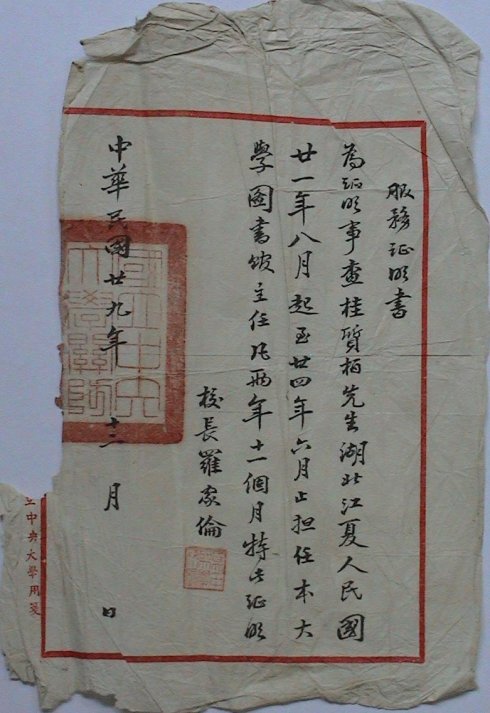 服務证明書
為证明事查桂質栢先生湖北江夏人民國
廿一年八月起至廿四年六月止担任本大
學圖書館主任凡兩年十一個月特此证明
校長羅家倫
中華民國廿九年十二月 日
國立中央大學關防
立中央大學用箋